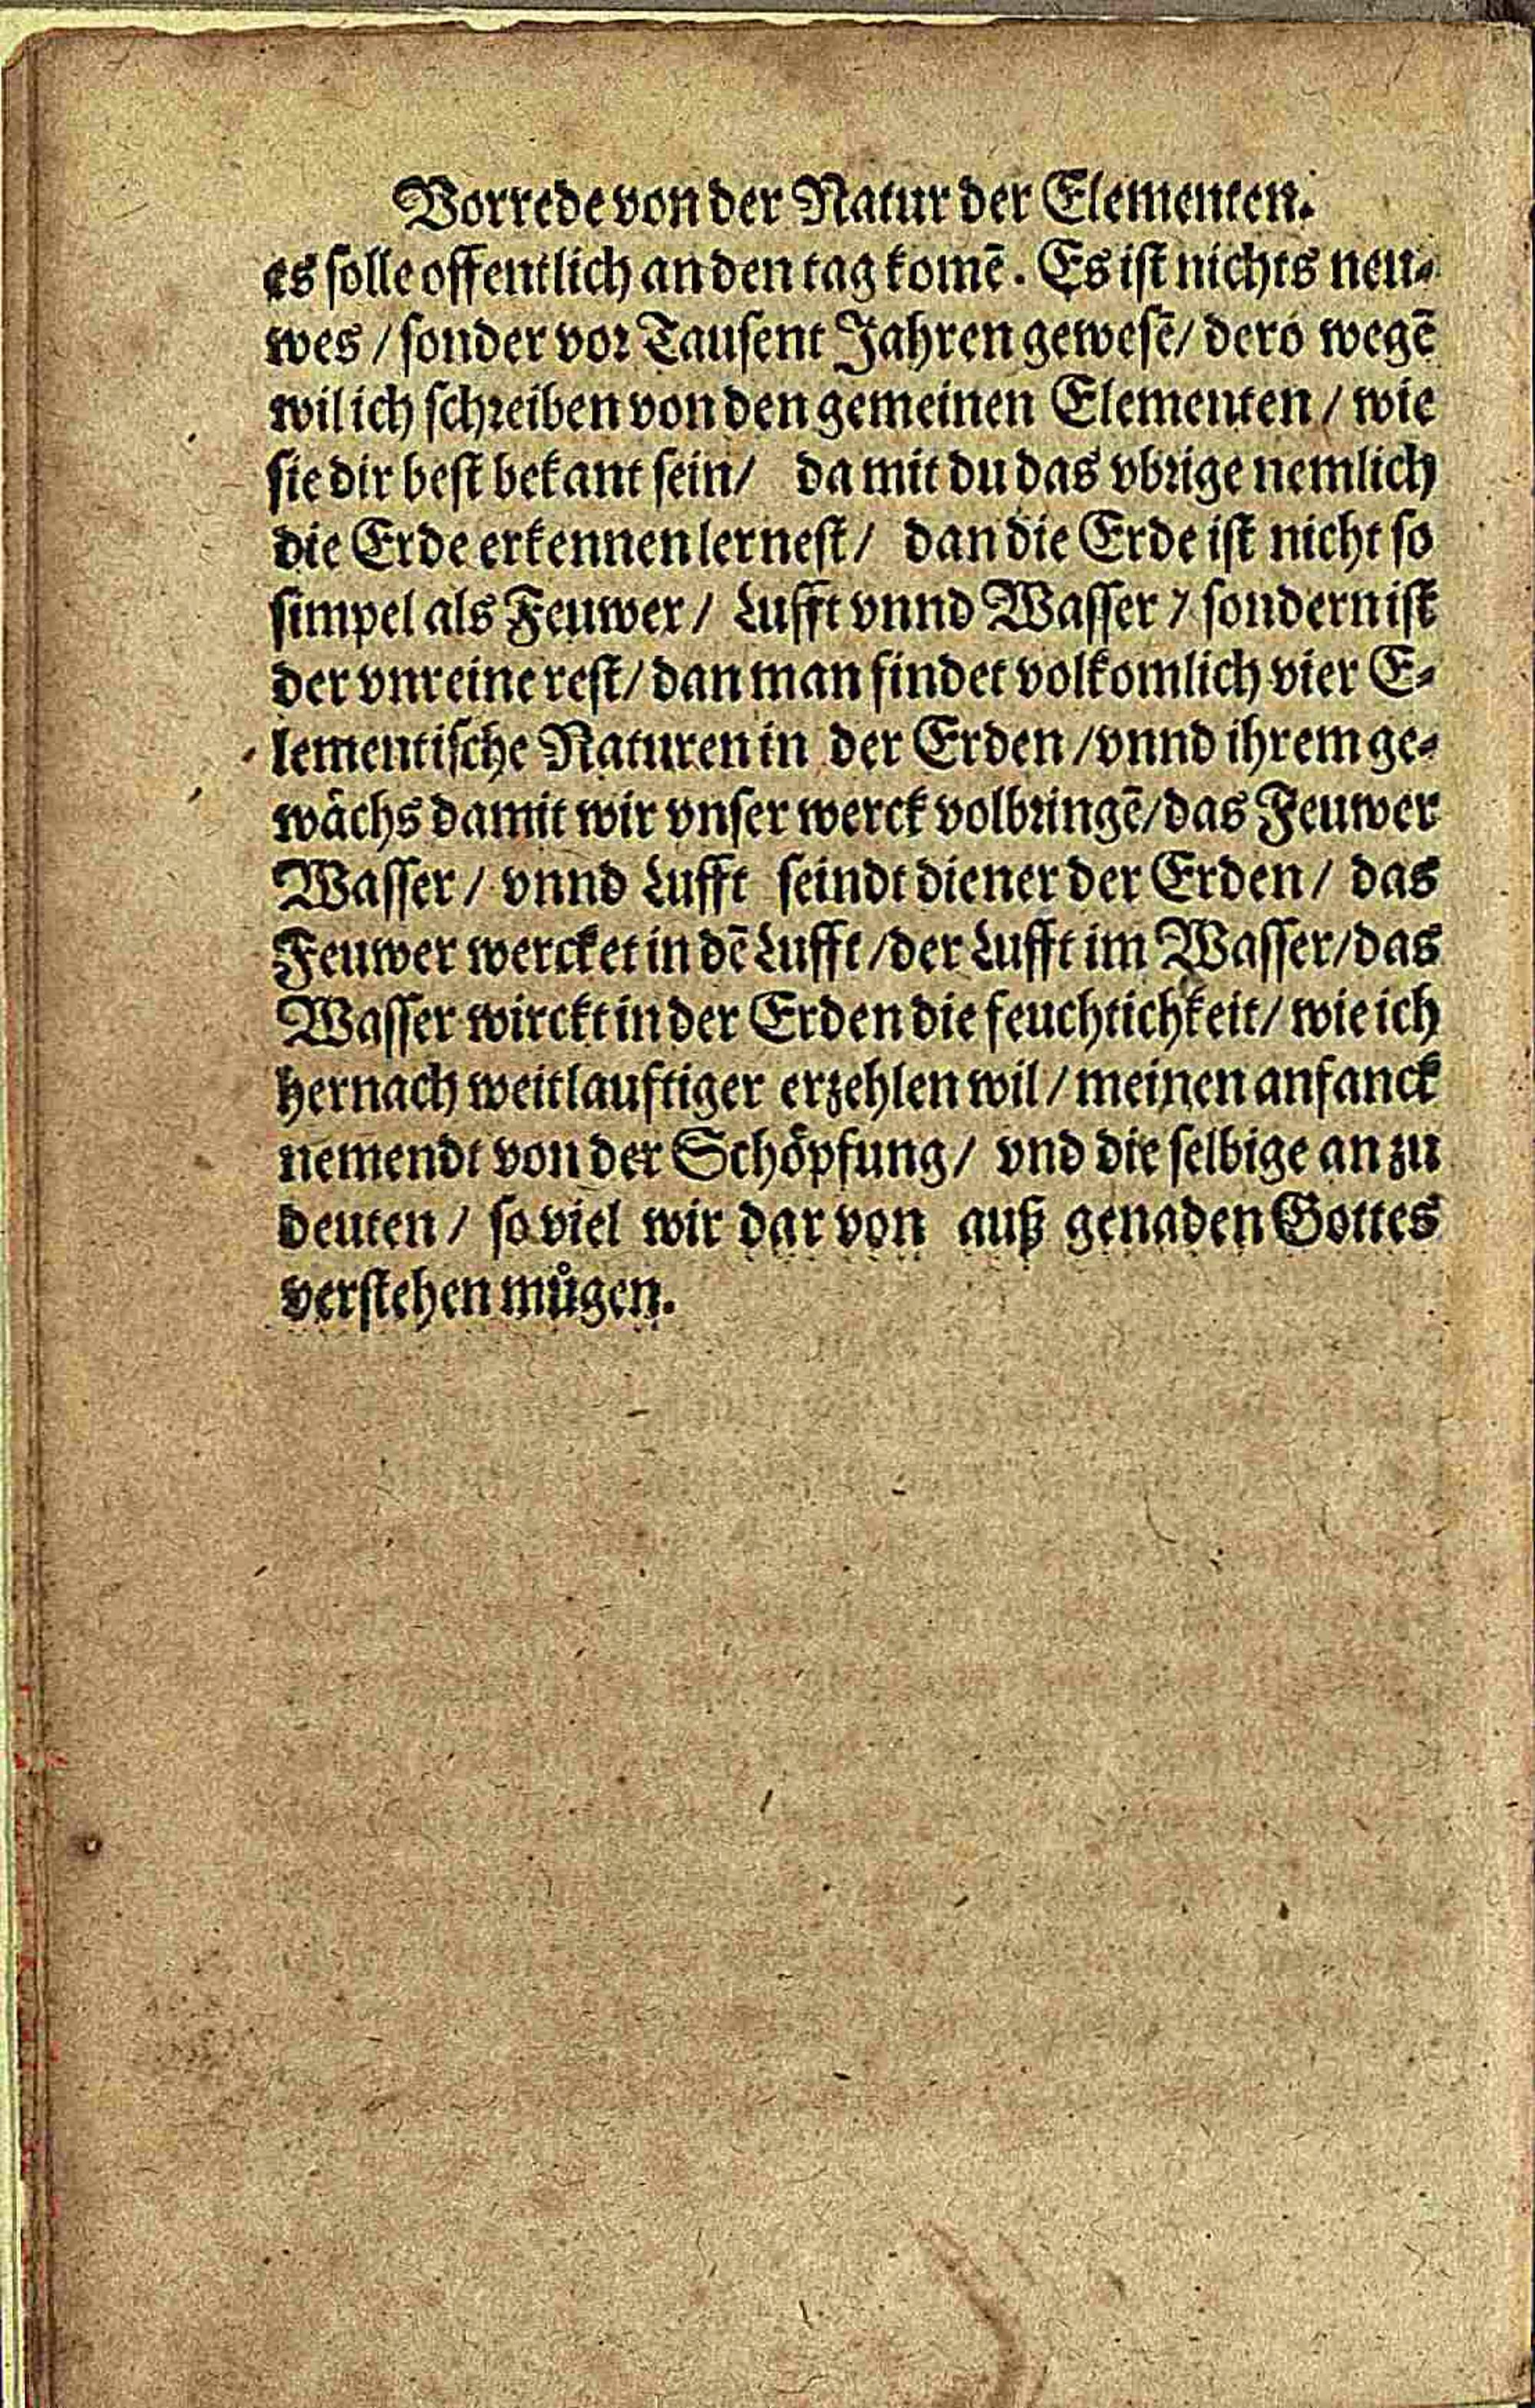 Vorrede von der Natur der Elementen.
es solle offentlich an den tag komē. Es ist nichts neu-
wes / sonder vor Tausent Jahren gewesē / dero wegē
wil ich schreiben von den gemeinen Elementen / wie
sie dir best bekant sein / da mit du das vbrige nemlich
die Erde erkennen lernest / dan die Erde ist nicht so
simpel als Feuwer / Lufft vnnd Wasser / sondern ist
der vnreine rest / dan man findet volkomlich vier E-
lementische Naturen in der Erden / vnnd ihrem ge-
wächs damit wir vnser werck volbringē / das Feuwer
Wasser / vnnd Lufft seindt diener der Erden / das
Feuwer wercket in dē Lufft / der Lufft im Wasser / das
Wasser wirckt in der Erden die feuchtichkeit / wie ich
hernach weitlauftiger erzehlen wil / meinen anfanck
nemendt von der Schöpfung / vnd die selbige an zu
deuten / so viel wir dar von auß genaden Gottes
verstehen můgen.